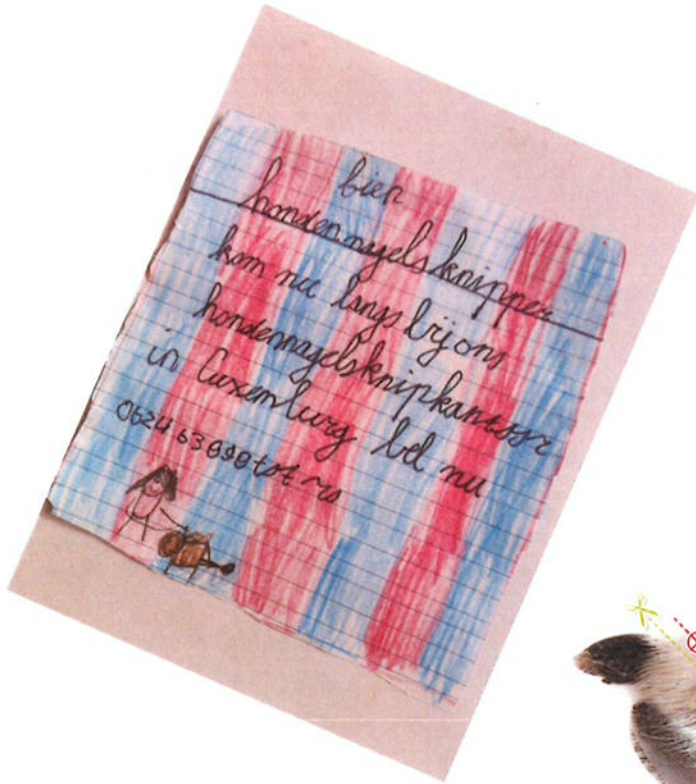 bien
hondennagelsknipper
kom nu langs bij ons
hondennagelsknipkantoor
in Luxemburg bel nu
tot